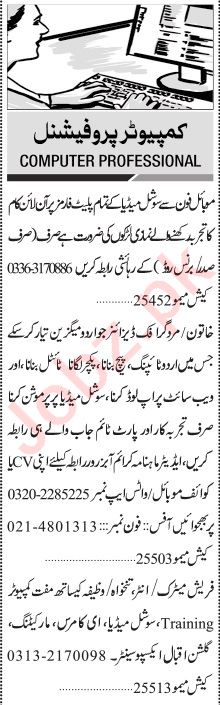 کمپیوٹر پروفیشنل
COMPUTER PROFESSIONAL
موبائل فون سے سوشل میڈیا کے تمام پلیٹ فارمز پر آن لائن کام
کا تجربہ رکھنے والے نمازی لڑکوں کی ضرورت ہے صرف (صرف
صدر/برنس روڈ) کے رہائشی رابطہ کریں 0336-3170886
کیش میمو 25452............
خاتون/مرد گرافک ڈیزائنر جو اردو میگزین تیار کر سکے
جس میں اردو ٹائپنگ، پیج بنانا، پکچر لگانا، ٹائٹل بنانا، اور
ویب سائٹ پر اپ لوڈ کرنا، سوشل میڈیا پر پرموشن کرنا
صرف تجربہ کار اور پارٹ ٹائم جاب والے ہی رابطہ
کریں، ایڈیٹر ماہنامہ کرائم آبزرور رابطہ کیلئے اپنی CV یا
کوائف موبائل/واٹس ایپ نمبر 0320-2285225
پر بھجوائیں آفس:: فون نمبر::: 021-4801313
کیش میمو 25503...................
فریش میٹرک/انٹر، تنخواہ/وظیفہ کیساتھ مفت کمپیوٹر
Training، سوشل میڈیا، ای کامرس، مارکیٹنگ،
گلشن اقبال ایکسپو سینٹر۔ 0313-2170098
کیش میمو 25513...................
Jobz.pk